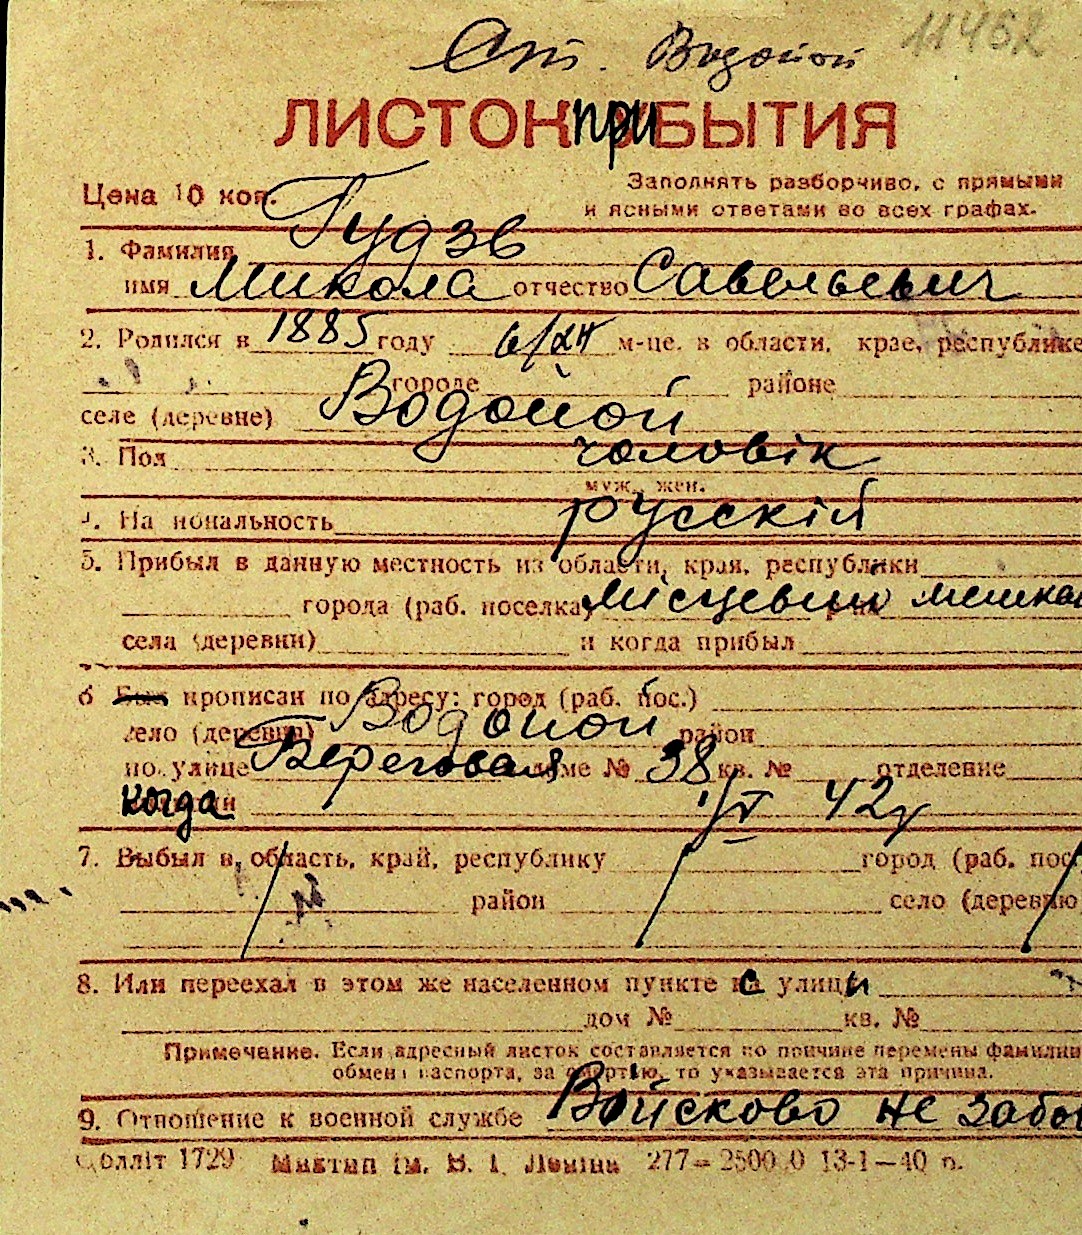 11462
Водопой
ЛИСТОК при БЫТИЯ
Цена 10 коп.
Заполнять разборчиво, с прямыми
и ясными ответами во всех графах.
1. Фамилия Гудзь
имя Микола отчество Савельевич
2. Родился в 1885 году 6/XII м-це, в области, крае, республике
городе районе
селе (деревне) Водопой
3. Пол чоловік
муж., жен.
4. Национальность русскій
5. Прибыл в данную местность из области, края, республики
города (раб. поселка) місцевий мешкан
села (деревни) и когда прибыл
6 Был прописан по адресу: город (раб. пос.)
село (деревня) Водопой район
по улице Береговая доме № 38 кв. № отделение
когда 1/V 42 г
7. Выбыл в, область, край, республику город (раб. пос.
район село (деревню
8. Или переехал в этом же населенном пункте с улицы
дом № кв. №
Примечание. Если адресный листок составляется по причине перемены фамилии
обмена паспорта, за смертью, то указывается эта причина.
9. Отношение к военной службе Войсково не забов
Обллiт 1729 Миктип iм. В. I. Ленiна 277—2500.0 13-1—40 р.